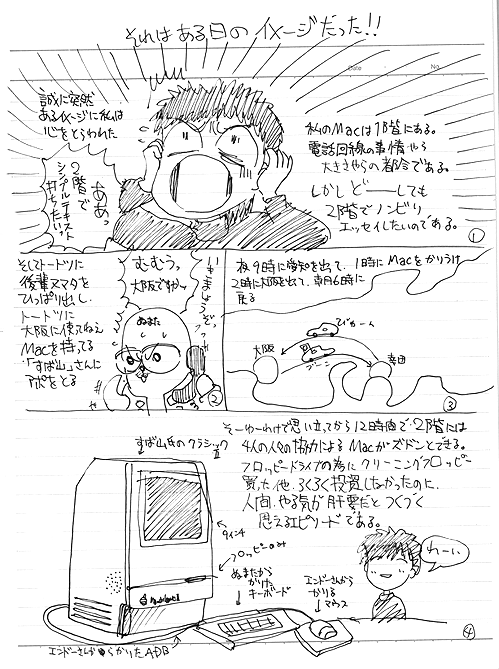 それはある日のイメージだった!!
Date
No.
誠に突然
あるイメージに私は
心をとらわれた
ああっ
2階で
シンプルテキスト
打ちたいっ
私のMacは1階にある。
電話回線の事情やら
大きさやらの都合である。
しかしどーーしても
2階でノンビリ
エッセイしたいのである。
1
そしてトートツに
後輩ヌマタを
ひっぱり出し、
トートツに
大阪に住てねえ
Macを持ってる
「すば山」さんに
アポをとる
むむうっ
大阪ですかッ
いきましょうぞっ
ぬまた
2
夜9時に愛知を出て、1時にMacをかりうけ
2時に大阪を出て、朝6時に
戻る
大阪
幸田
3
そーゆーわけで思い立ってから12時間で、2階には
4人の人々の協力によるMacがズドンとできる。
フロッピードライブの為にクリーニングフロッピー
買った他、ろくろく投資しなかったのに。
人間、やる気が肝要だとつくづく
思えるエピソードである。
すば山氏のクラシックII
9インチ
フロッピーのみ
ぬまたから
かりた
キーボード
エンドーさんから
かりる
マウス
わーい
エンドーさんからかりたADB
4